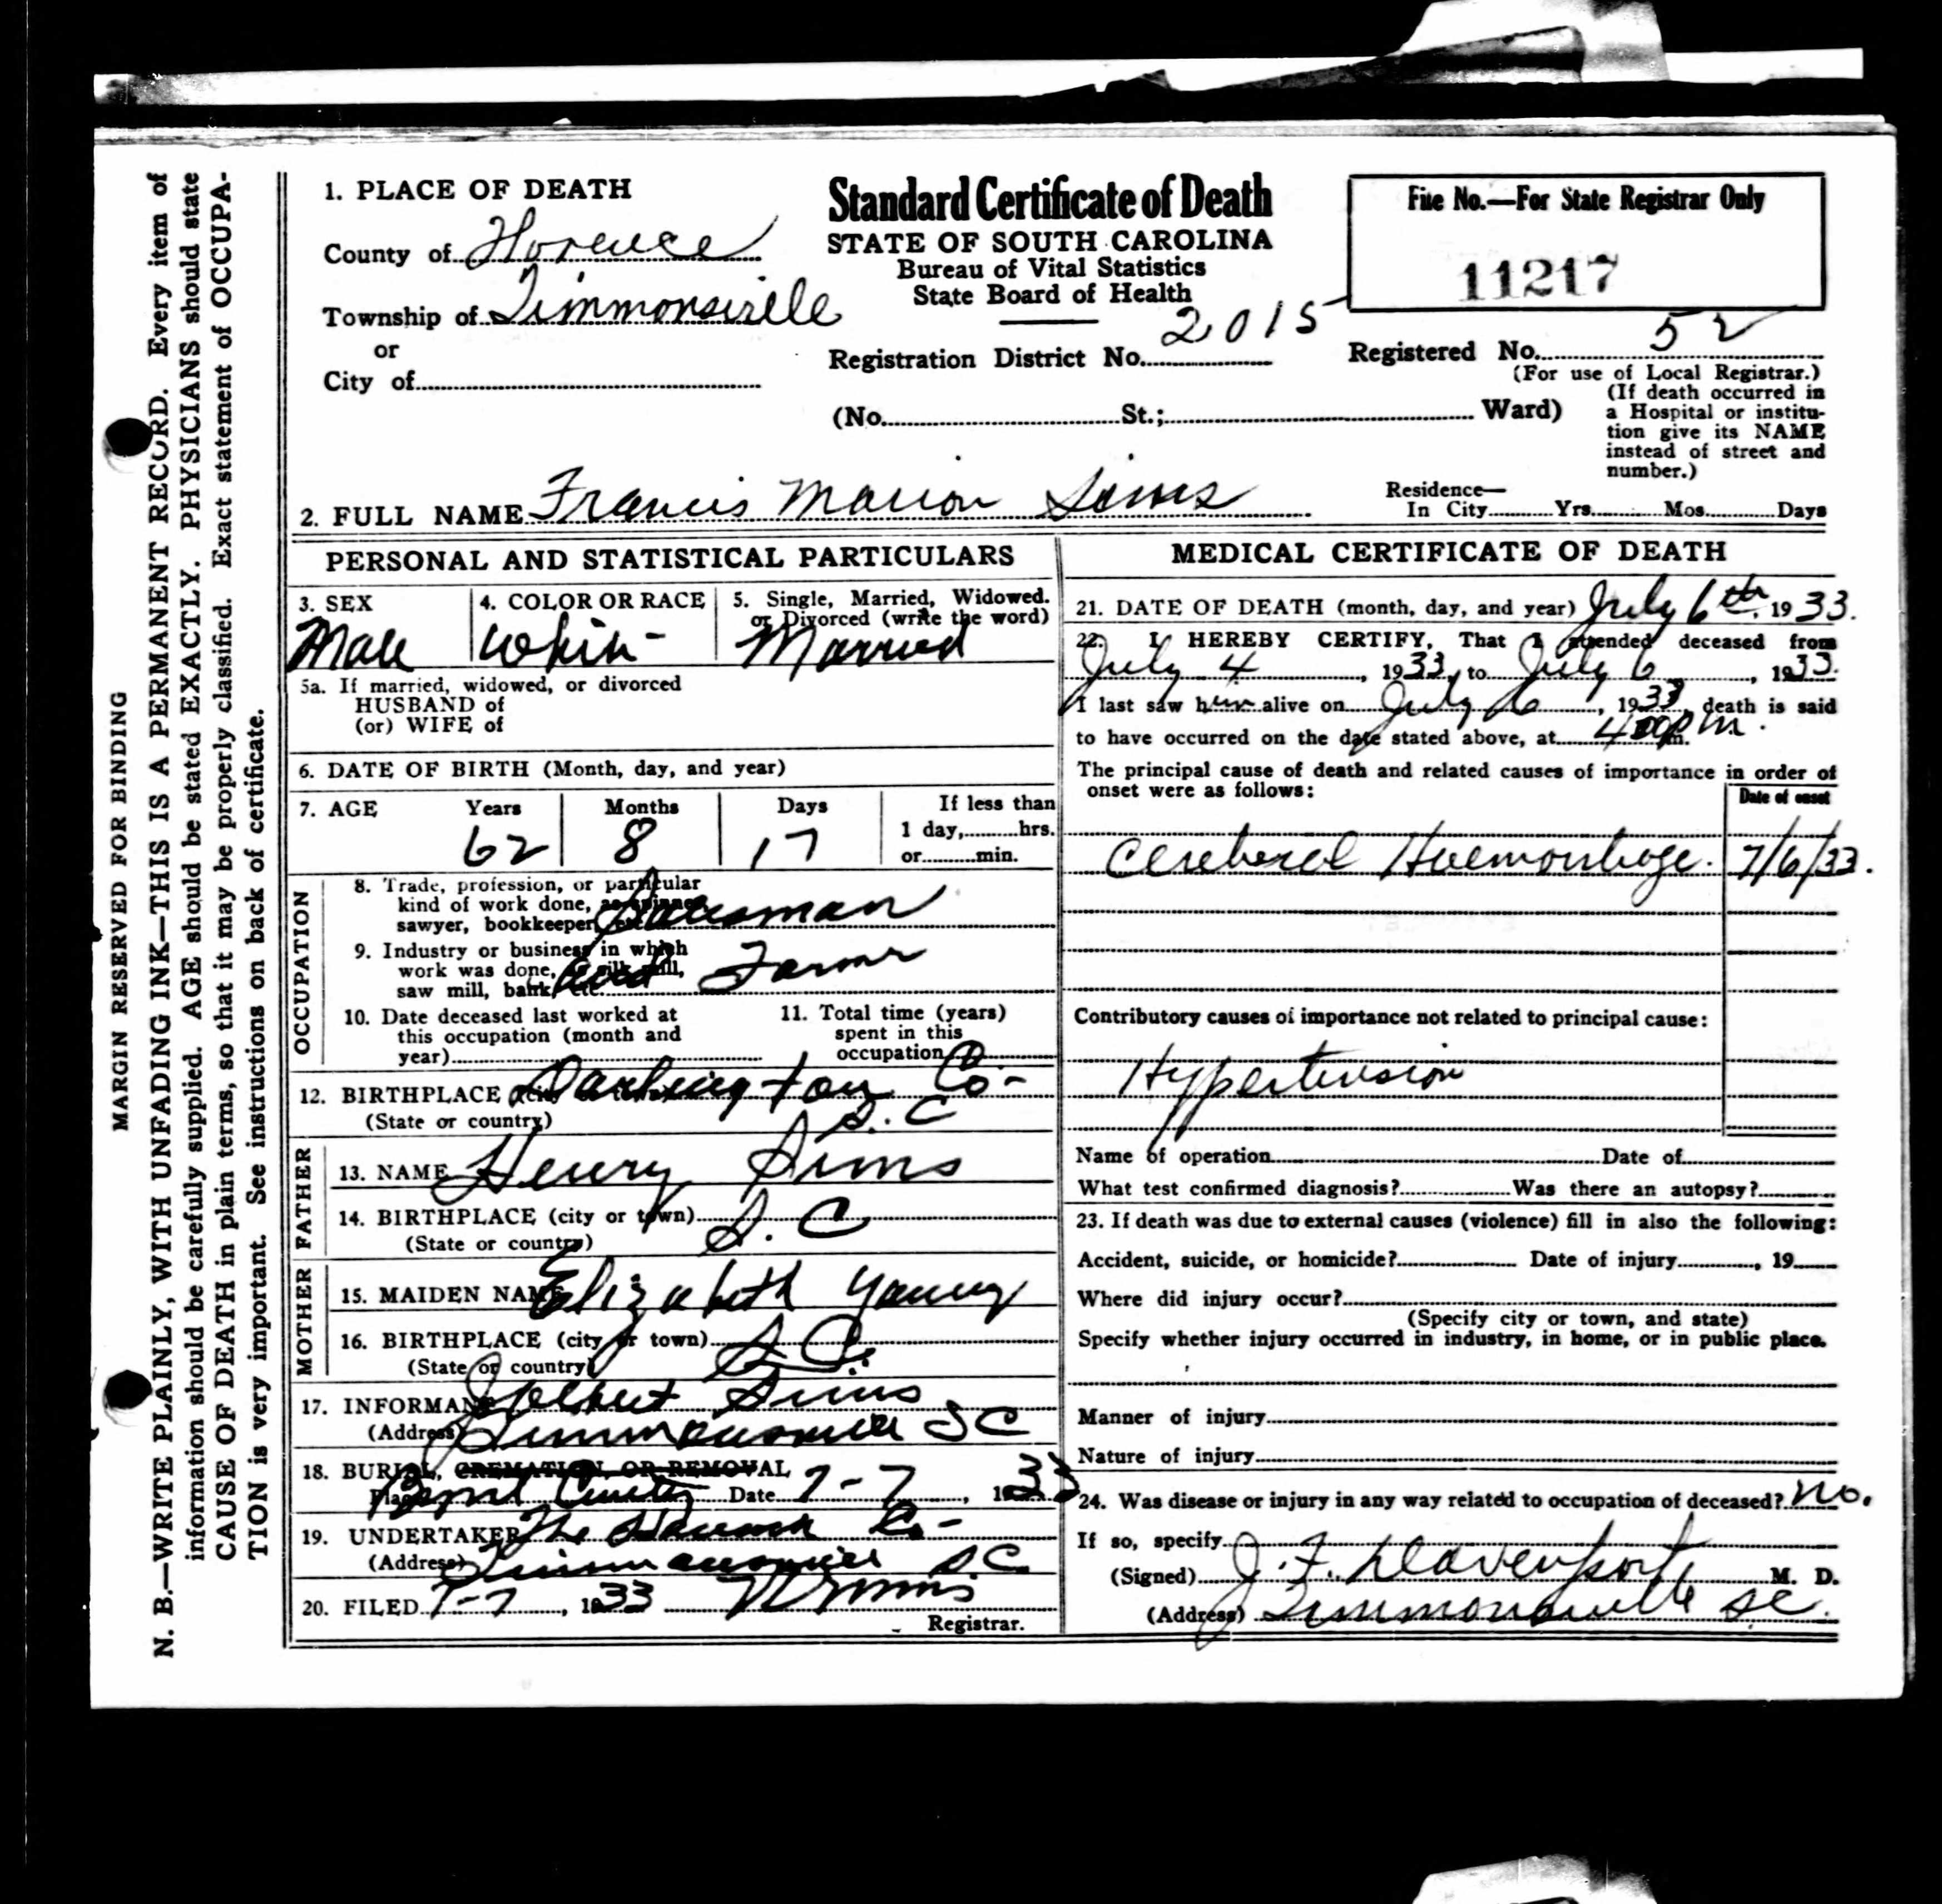 MARGIN RESERVED FOR BINDING
N. B.—WRITE PLAINLY, WITH UNFADING INK—THIS IS A PERMANENT RECORD. Every item of
information should be carefully supplied. AGE should be stated EXACTLY. PHYSICIANS should state
CAUSE OF DEATH in plain terms, so that it may be properly classified. Exact statement of OCCUPA-
TION is very important. See instructions on back of certificate.
1. PLACE OF DEATH
County of Florence
Township of Timmonsville
or
City of
Standard Certificate of Death
STATE OF SOUTH CAROLINA
Bureau of Vital Statistics
State Board of Health
Registration District No. 2015
File No.—For State Registrar Only
11217
Registered No. 52
(For use of Local Registrar.)
(No. St.; Ward)
(If death occurred in
a Hospital or institu-
tion give its NAME
instead of street and
number.)
2. FULL NAME Francis Marion Sims
Residence—
In City Yrs. Mos. Days
PERSONAL AND STATISTICAL PARTICULARS
3. SEX
Male
4. COLOR OR RACE
5. Single, Married, Widowed.
or Divorced (write the word)
Married
5a. If married, widowed, or divorced
HUSBAND of
(or) WIFE of
6. DATE OF BIRTH (Month, day, and year)
7. AGE Years Months Days
62 8 17
If less than
1 day, hrs.
or min.
OCCUPATION
8. Trade, profession, or particular
kind of work done, as spinner
sawyer, bookkeeper, etc. Salesman
9. Industry or business in which
work was done, as silk mill,
saw mill, bank, etc. and Farmer
10. Date deceased last worked at
this occupation (month and
year)
11. Total time (years)
spent in this
occupation
12. BIRTHPLACE Darlington Co-
(State or country) S.C
FATHER
13. NAME Henry Sims
14. BIRTHPLACE (city or town) S.C
(State or country)
MOTHER
15. MAIDEN NAME Elizabeth Young
16. BIRTHPLACE (city or town) S.C.
(State or country)
17. INFORMANT Sims
(Address) Timmonsville SC
18. BURIAL, CREMATION, OR REMOVAL
Place Date 7-7, 1933
19. UNDERTAKER The Co-
(Address) Timmonsville S.C.
20. FILED 7-7, 1933
Registrar.
MEDICAL CERTIFICATE OF DEATH
21. DATE OF DEATH (month, day, and year) July 6th, 1933.
22. I HEREBY CERTIFY, That I attended deceased from
July 4, 1933, to July 6, 1933.
I last saw him alive on July 6, 1933, death is said
to have occurred on the date stated above, at 4:00 p m.
The principal cause of death and related causes of importance in order of
onset were as follows:
Date of onset
Cerebral Haemorrhage. 7/6/33.
Contributory causes of importance not related to principal cause:
Hypertension
Name of operation Date of
What test confirmed diagnosis? Was there an autopsy?
23. If death was due to external causes (violence) fill in also the following:
Accident, suicide, or homicide? Date of injury, 19
Where did injury occur?
(Specify city or town, and state)
Specify whether injury occurred in industry, in home, or in public place.
Manner of injury
Nature of injury
24. Was disease or injury in any way related to occupation of deceased? No.
If so, specify
(Signed) J. F. Davenport M. D.
(Address) Timmonsville SC.